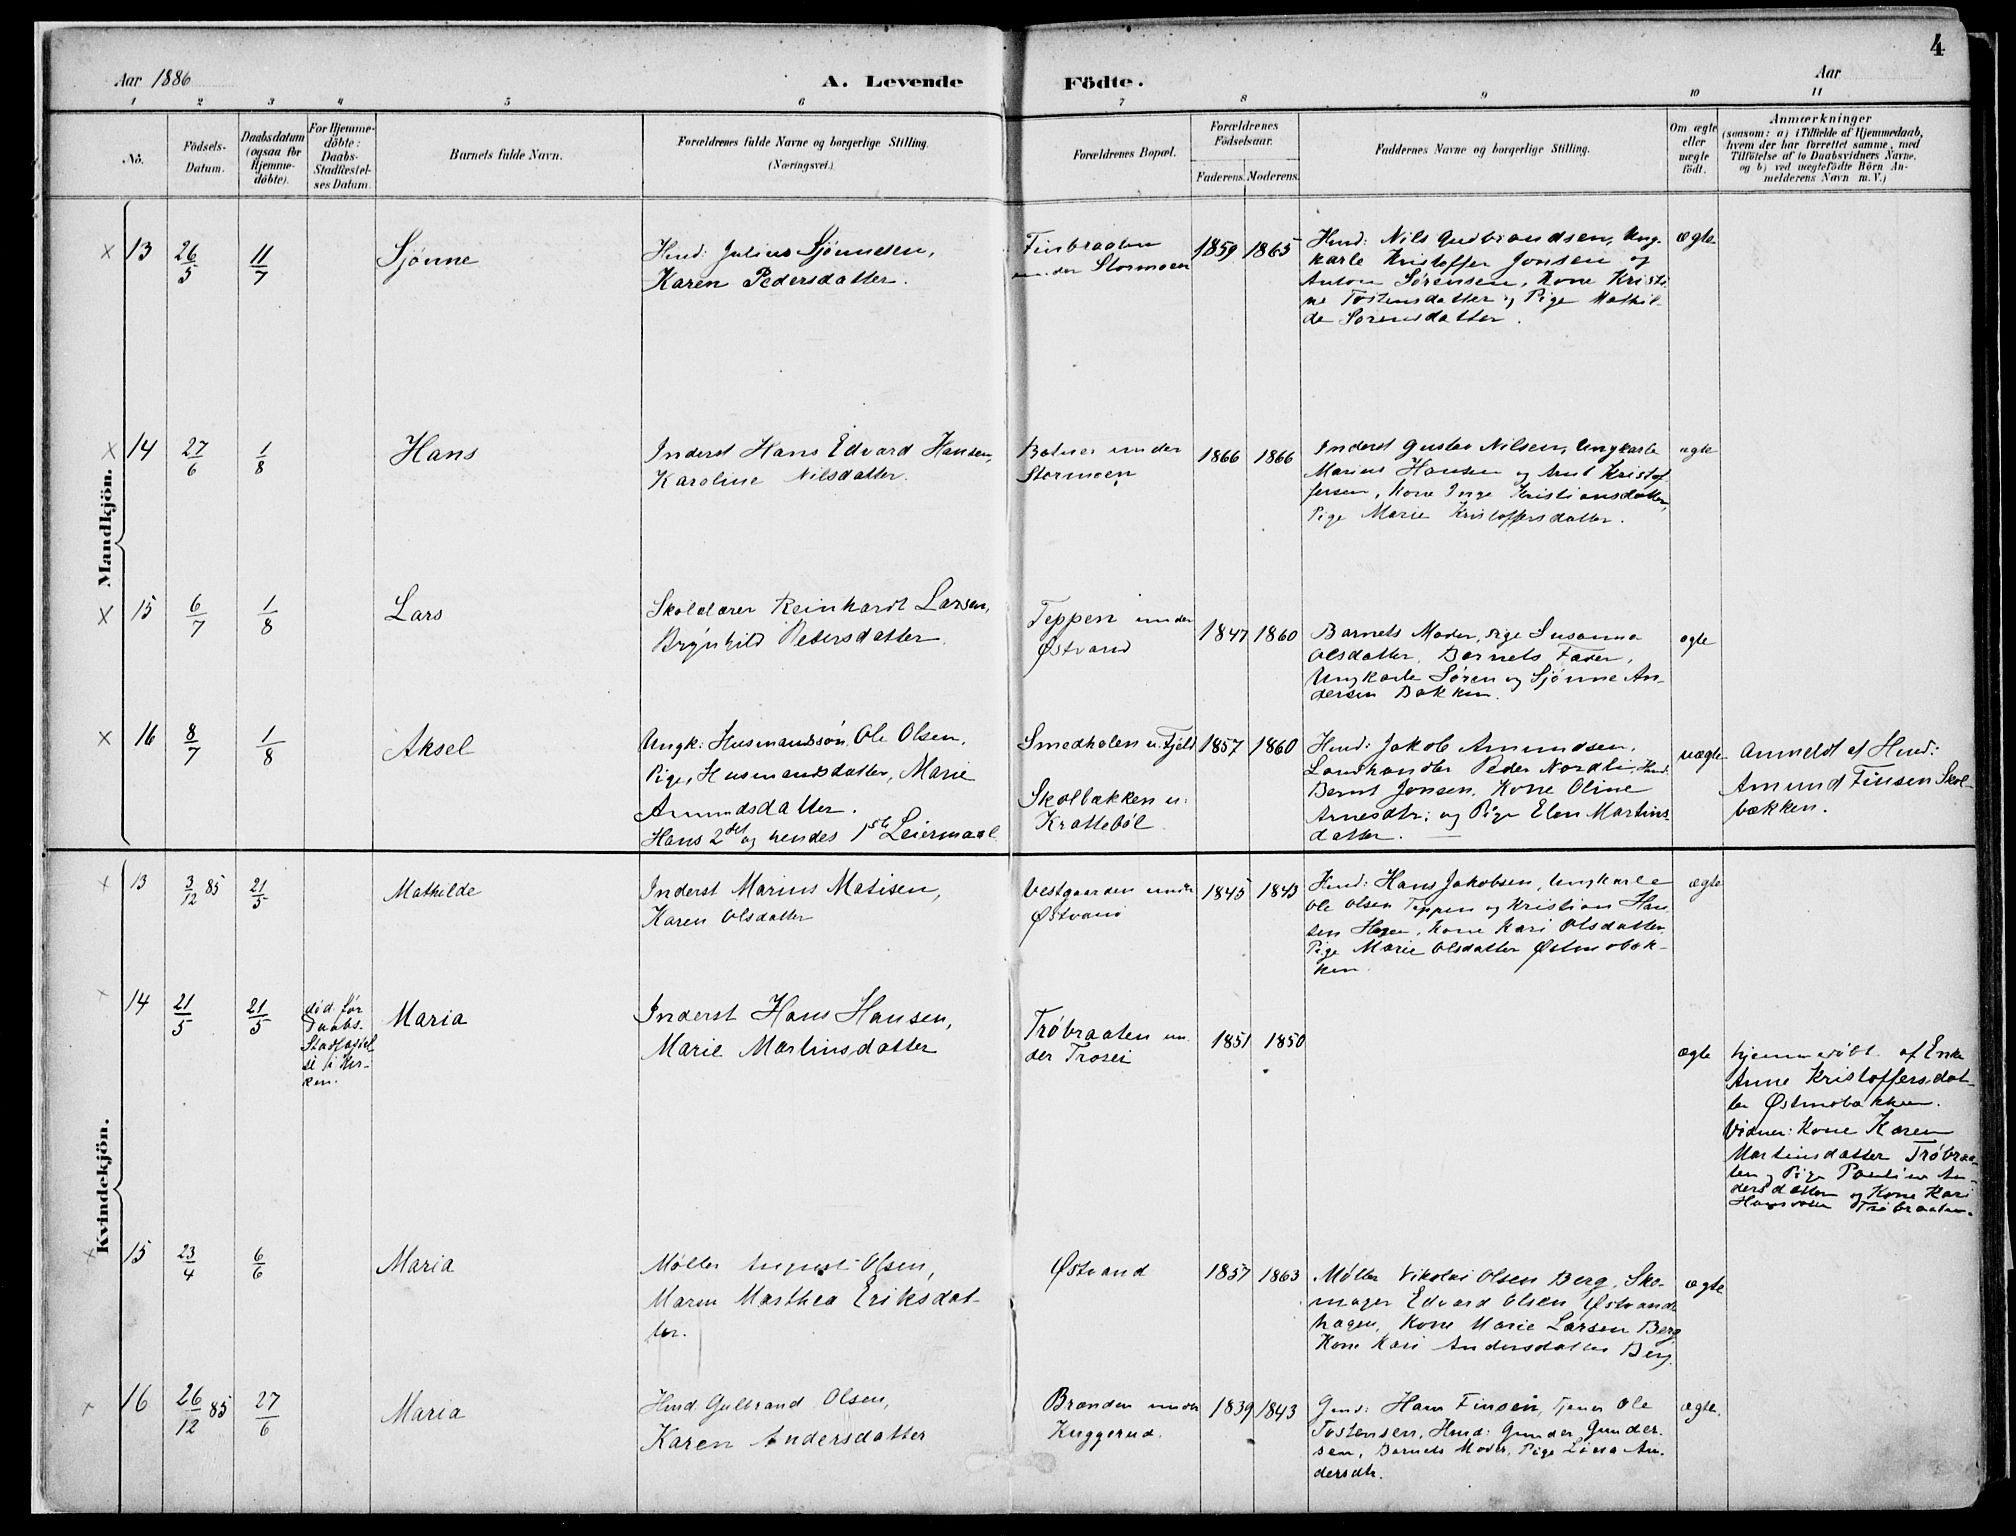 4
Aar 1886
A. Levende
Födte.
Aar
1 2 3 4 5 6 7 8 9 10 11
No.
Födsels-
Datum.
Daabsdatum
(ogsaa for
Hjemme-
döbte).
For Hjemme-
döbte:
Daabs-
Stadfæstel-
ses Datum
Barnets fulde Navn.
Forældrenes fulde Navne og borgerlige Stilling.
(Næringsvei.)
Forældrenes Bopæl.
Forældrenes
Födselsaar.
Faderens. Moderens.
Faddernes Navne og borgerlige Stilling.
Om ægte
eller
uægte
födt.
Anmærkninger
(saasom: a) i Tilfælde af Hjemmedaab,
hvem der har forrettet samme, med
Tilföielse af to Daabsvidners Navne,
og b) ved uægtefödte Börn An-
melderens Navn m. V.)
Mandkjön.
× 13
26/5
11/7
Sjønne
Husd: Julius Sjønnesen,
Karen Pedersdatter.
Finbraaten
under Stormoen
1859 1865
Husd: Nils Gudbrandsen, Ung-
karle Kristoffer Jonsen og
Anton Sørensen, Kone Kristi-
ne Tostensdatter og Pige Mathil-
de Sørensdatter.
ægte
× 14
27/6
1/8
Hans
Inderst Hans Edvard Hansen,
Karoline Nilsdatter.
under
Stormoen
1866 1866
Inderst Gustav Nilsen, Ungkarle
Marius Hansen og Arnt Kristof-
fersen, Kone Inge Kristiansdatter,
Pige Marie Kristoffersdatter.
ægte
× 15
6/7
1/8
Lars
Skolelærer Reinhardt Larsen,
Brynhild Petersdatter.
Teppen under
Østvand
1847 1860
Barnets Moder, Pige Susanna
Olsdatter, Barnets Fader,
Ungkarle Søren og Sjønne An-
dersen Bakken.
ægte
× 16
8/7
1/8
Aksel
Ungk: Husmandssøn Ole Olsen,
Pige, Husmandsdatter, Marie
Amundsdatter.
Hans 2det og hendes 1ste Leiermaal.
Smedhølen u. Fjeld
Skolbækken u:
Krattebøl.
1857 1860
Husd: Jakob Amundsen,
Landhandler Peder Nordli, Husd:
Bernt Jonsen, Kone Oline
Arnesdtr: og Pige Elen Martins-
datter.
uægte
Anmeldt af Husd:
Amund Finsen Skol-
bækken.
Kvindekjön.
× 13
3/12 85
21/5
Mathilde
Inderst Marius Matisen,
Karen Olsdatter
Vestgaarden under
Østvand
1845 1843
Husd: Hans Jakobsen, Ungkarle
Ole Olsen Teppen og Kristian Han-
sen Hagen, Kone Kari Olsdatter,
Pige Marie Olsdatter Østmobak-
ken.
ægte
× 14
21/5
21/5
død før
Daabs-
Stadfæstel-
se i Kir-
ken.
Maria
Inderst Hans Hansen,
Marie Martinsdatter
Trøbraaten un-
der Trosei
1851 1850
ægte
hjemmedøbt af Enke
Anne Kristoffersdat-
ter Østmobakken.
Vidner: Kone Karen
Martinsdatter Trøbraa-
ten, Pige Pauline An-
dersdatter og Kone Kari
Trøbraaten.
× 15
23/4
6/6
Maria
Møller August Olsen,
Maren Marthea Eriksdat-
ter.
Østvand
1857 1863
Møller Nikolai Olsen Berg, Sko-
mager Edvard Olsen Østvand-
hagen, Kone Marie Larsen Berg,
Kone Kari Andersdatter Berg.
ægte
× 16
26/12 85
27/6
Maria
Husd. Gulbrand Olsen,
Karen Andersdatter
Brænden under
Kuggerud.
1839 1843
Gmd: Hans Finsen, Tjener Ole
Tostensen, Husd: Gunder Gunder-
sen, Barnets Moder, Pige Lina An-
dersdtr.
ægte.